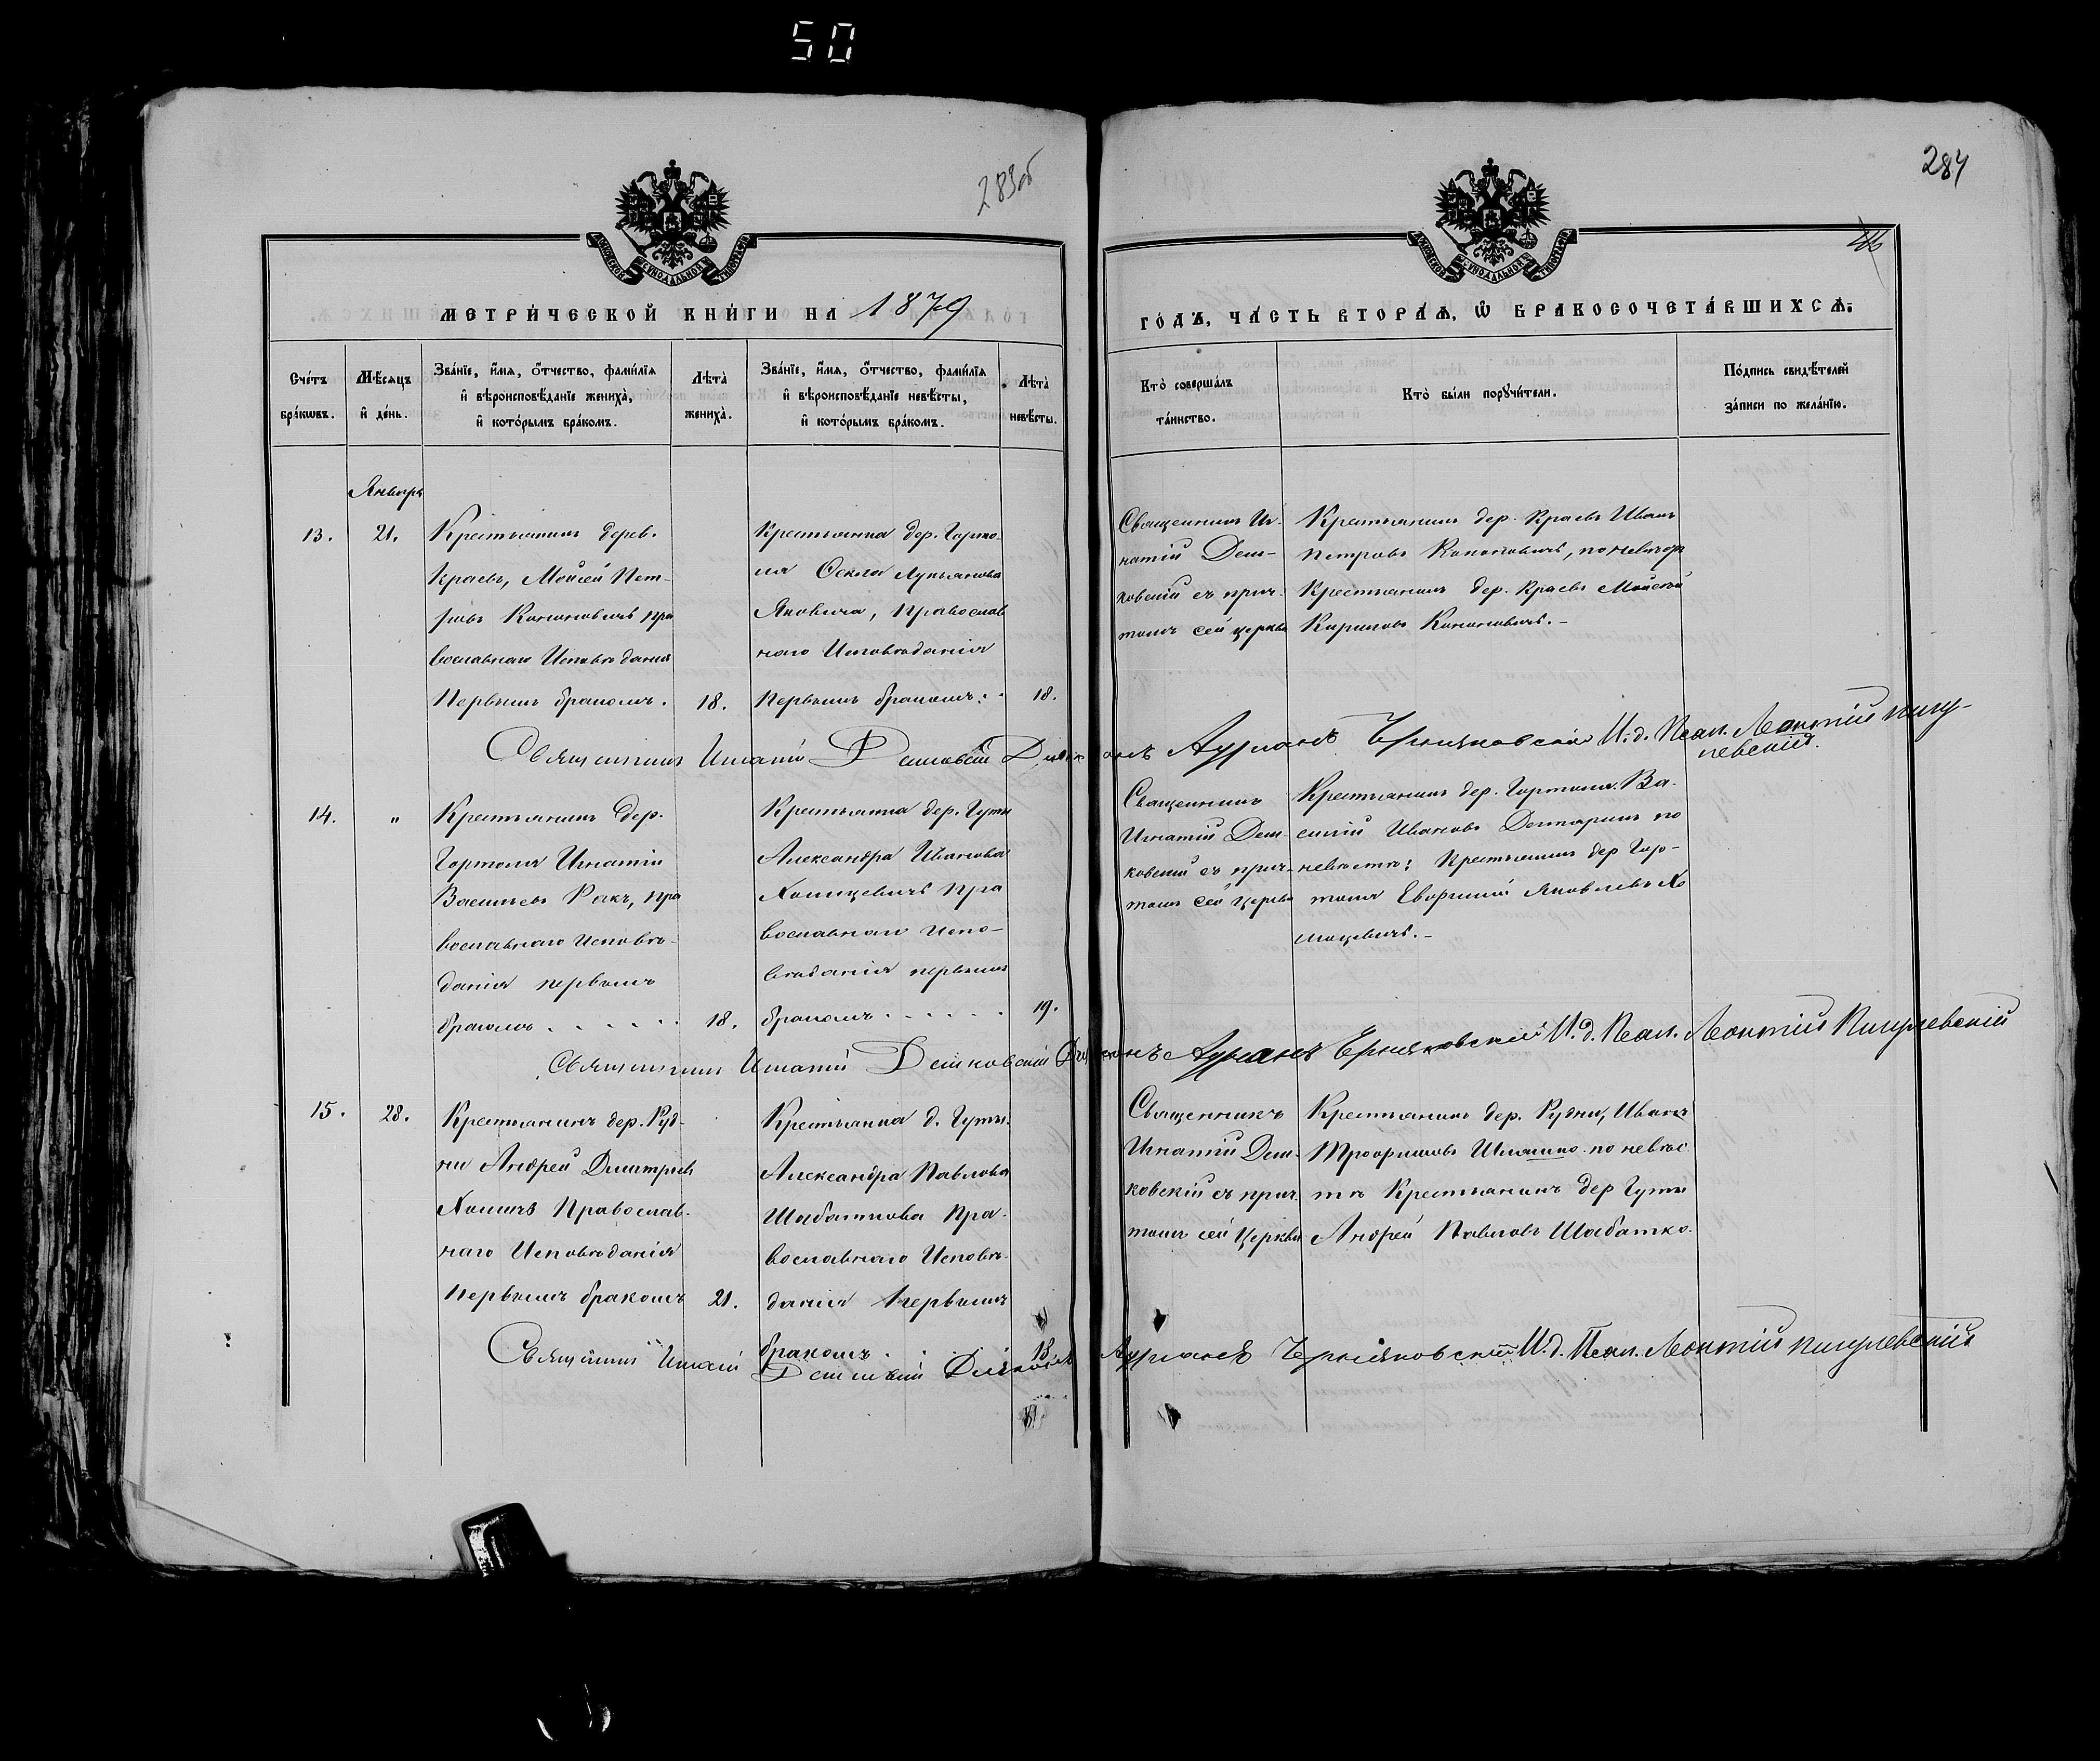 50
283об
284
МЕТРИ́ЧЕСКОЙ КНИ́ГИ НА 1879
ГО́ДЪ, ЧА́СТЬ ВТОРА́Я, Ѡ БРАКОСОЧЕТА́ВШИХСѦ:
Сче́тъ бра́кѡвъ.
Мѣ́сяцъ и де́нь.
Зва́нїе, и́мѧ, ѻ́тчество, фами́лїѧ
и вѣроисповѣ́данїе жениха̀,
и кото́рымъ бра́комъ.
Лѣта̀ жениха̀.
Зва́нїе, и́мѧ, ѻ́тчество, фами́лїѧ
и вѣроисповѣ́данїе невѣ́сты,
и кото́рымъ бра́комъ.
Лѣта̀ невѣ́сты.
Кто̀ соверша́лъ
та́инство.
Кто̀ бы́ли порꙋчи́тели.
По́дпись свидѣ́телей
за́писи по жела́нїю.
Январь
13.
21.
Крестьянинъ дерев.
Краевъ, Моисей Пет-
ровъ Кононовичъ пра
вославнаго Исповѣданія
Первымъ бракомъ.
18.
Крестьянка дер. Горто-
ля Ѳекла Лукьянова
Яковича, Православ
наго Исповѣданія
Первымъ бракомъ:
18.
Священникъ Иг-
натій Деш-
ковскій съ прич-
томъ сей церкви
Крестьянинъ дер. Краевъ Иванъ
Петровъ Кононовичъ, по
Крестьянинъ дер. Краевъ Моисей
Кириловъ Кононовичъ.-
Священникъ Игнатій Дешковскій Діаконъ Черняковскій И.д. Псал. Леонтій Пигу-
левскій.
14.
"
Крестьянинъ дер.
Гортоля Игнатій
Васильевъ Ракъ, пра
вославнаго Исповѣ-
данія первымъ
бракомъ . . . . . .
18.
Крестьянка дер. Гуты
Александра Иванова
Хомицевичъ Пра
вославнаго Испо-
вѣданія первымъ
бракомъ . . . . . .
19.
Священникъ
Игнатій Деш-
ковскій съ прич-
томъ сей Церкви
Крестьянинъ дер. Гортоля Ва-
силій Ивановъ по
невѣстѣ: Крестьянинъ дер Гор-
толя Евфимій Яковлевъ Хо
мицевичъ.-
Священникъ Игнатій Дешковскій Діаконъ Черняковскій И.д. Псал. Леонтій Пигулевскій
15.
28.
Крестьянинъ дер. Руд-
ни Андрей Дмитріевъ
Хомичъ Православ-
наго Исповѣданія
Первымъ бракомъ
21.
Крестьянка д. Гуты.
Александра Павлова
Шабаткова Пра-
вославнаго Исповѣ-
данія Первымъ
бракомъ . . .
18.
Священникъ
Игнатій Деш-
ковскій съ прич-
томъ сей Церкви
Крестьянинъ дер. Рудни, Иванъ
Трофимовъ по невѣс
тѣ Крестьянинъ дер Гуты
Андрей Павловъ Шабатко.
Священникъ Игнатій Дешковскій Діаконъ Черняковскій И.д. Псал. Леонтій Пигулевскій